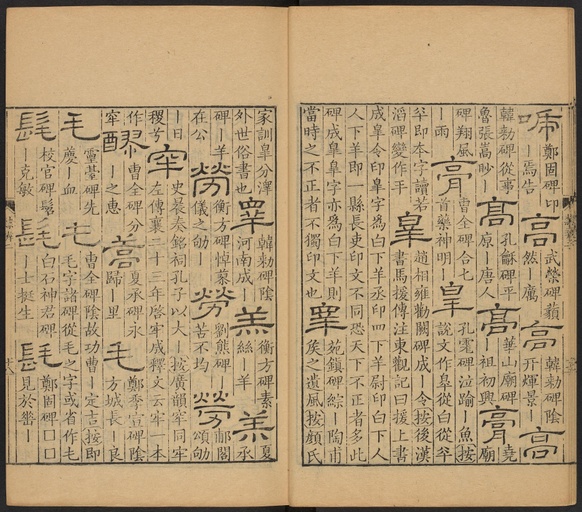 鄭固碑卬
｜焉告
高
武榮碑藐
然｜厲
高
韓勑碑陰
開煇景｜
高
韓勑碑從事
魯張嵩眇｜
髙
孔龢碑平
原｜唐人
髙
華山廟碑
｜祖初興
膏
堯
廟
碑翔風
｜雨
膏
曹全碑合七
首藥神明｜
皐
孔宙碑泣踰｜魚按
說文作皐從白從夲
夲即本字讀若
滔碑變作乎
皐
趙相雍勸闕碑成｜令按後漢
書馬援傳注東觀記曰援上書
成皐令印皐字為白下羊丞印四下羊尉印白下人
人下羊即一縣長吏印文不同恐天下不正者多此
碑成皐皐字亦為白下羊則
當時之不正者不獨印文也
睾
苑鎮碑綜｜陶甫
侯之遺風按顏氏
家訓皐分澤
外世俗書也
睾
韓勑碑陰
河南成｜
羔
衡方碑素
絲｜羊
羔
夏
承
碑｜羊
在公
勞
衡方碑悼慕
儀之劬｜
勞
劉熊碑｜
苦不均
勞
郙閣
頌劬
｜日
稷兮
窂
史晨奏銘祠孔子以大｜按廣韻窂同牢
左傳襄二十三年啓牢成釋文云牢一本
作
窂
醪
曹全碑分
｜之惠
蒿
夏承碑永
歸｜里
毛
鄭季宣碑陰
方城長｜良
毛
靈臺碑先
慶｜血
毛
曹全碑陰故功曹｜定吉按即
毛字諸碑從毛之字或省作毛
髦
校官碑髦
｜克敏
髦
白石神君碑
｜士挺生
髦
鄭固碑囗囗
｜見於